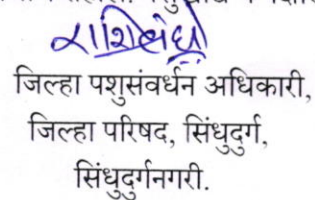 जिल्हा पशुसंवर्धन अधिकारी,
जिल्हा परिषद, सिंधुदुर्ग,
सिंधुदुर्गनगरी.